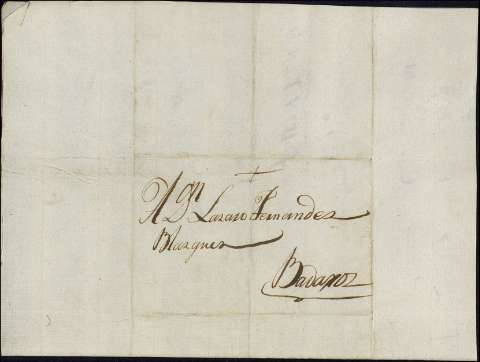 +
A Dⁿ Lazaro Fernandez
Blazquez
Badaxoz